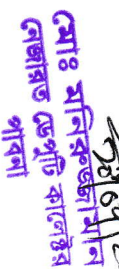 মোঃ মনিরুজ্জামান
নেজারত ডেপুটি কালেক্টর
পাবনা